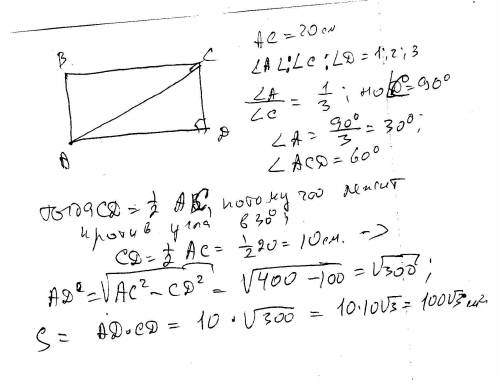 B
C
A
D
AC = 20 см
∠A : ∠C : ∠D = 1 : 2 : 3
∠A/∠C = 1/3 ; но = 90°
∠A = 90°/3 = 30° ;
∠ACD = 60°
тогда CD = 1/2 AC, потому что лежит
против угла в 30° ;
CD = 1/2 AC = 1/2 20 = 10 см. →
AD² = √AC² − CD² = √400 − 100 = √300 ;
S = AD · CD = 10 · √300 = 10 · 10√3 = 100√3 см²